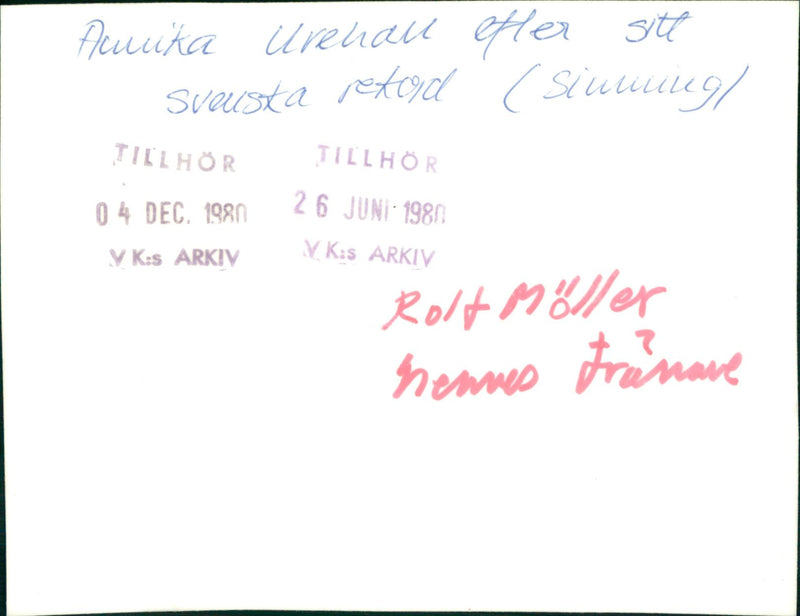 Annika Urehall efter sitt
svenska rekord (simning)
TILLHÖR
04 DEC. 1980
VK:s ARKIV
TILLHÖR
26 JUNI 1980
VK:s ARKIV
Rolf Möller
hennes tränare